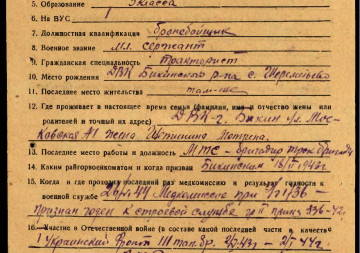 5. Образование 3 класса
6. На ВУС 1
7. Должностная квалификация бронебойщик
8. Военное звание мл. сержант
9. Гражданская специальность тракторист
10. Место рождения ДВК Бикинского р-на с. Шереметьево
11. Последнее место жительства там-же
12. Где проживает в настоящее время семья (фамилия, имя и отчество жены или
родителей и точный их адрес) ДВК-г. Бикин ул. Мос-
ковская 41 жена Матрена.
13. Последнее место работы и должность МТС - бригадир трак. бригады
14. Каким райгорвоенкоматом и когда призван Бикинским 1940 г
15. Когда и где проходил последний раз медкомиссию и результат годности к
военной службе Медкомиссия при
признан годен к строевой службе гр II приказ 336-42г.
16. Участие в Отечественной войне (в составе какой последней части и качестве
1 Украинский Фронт